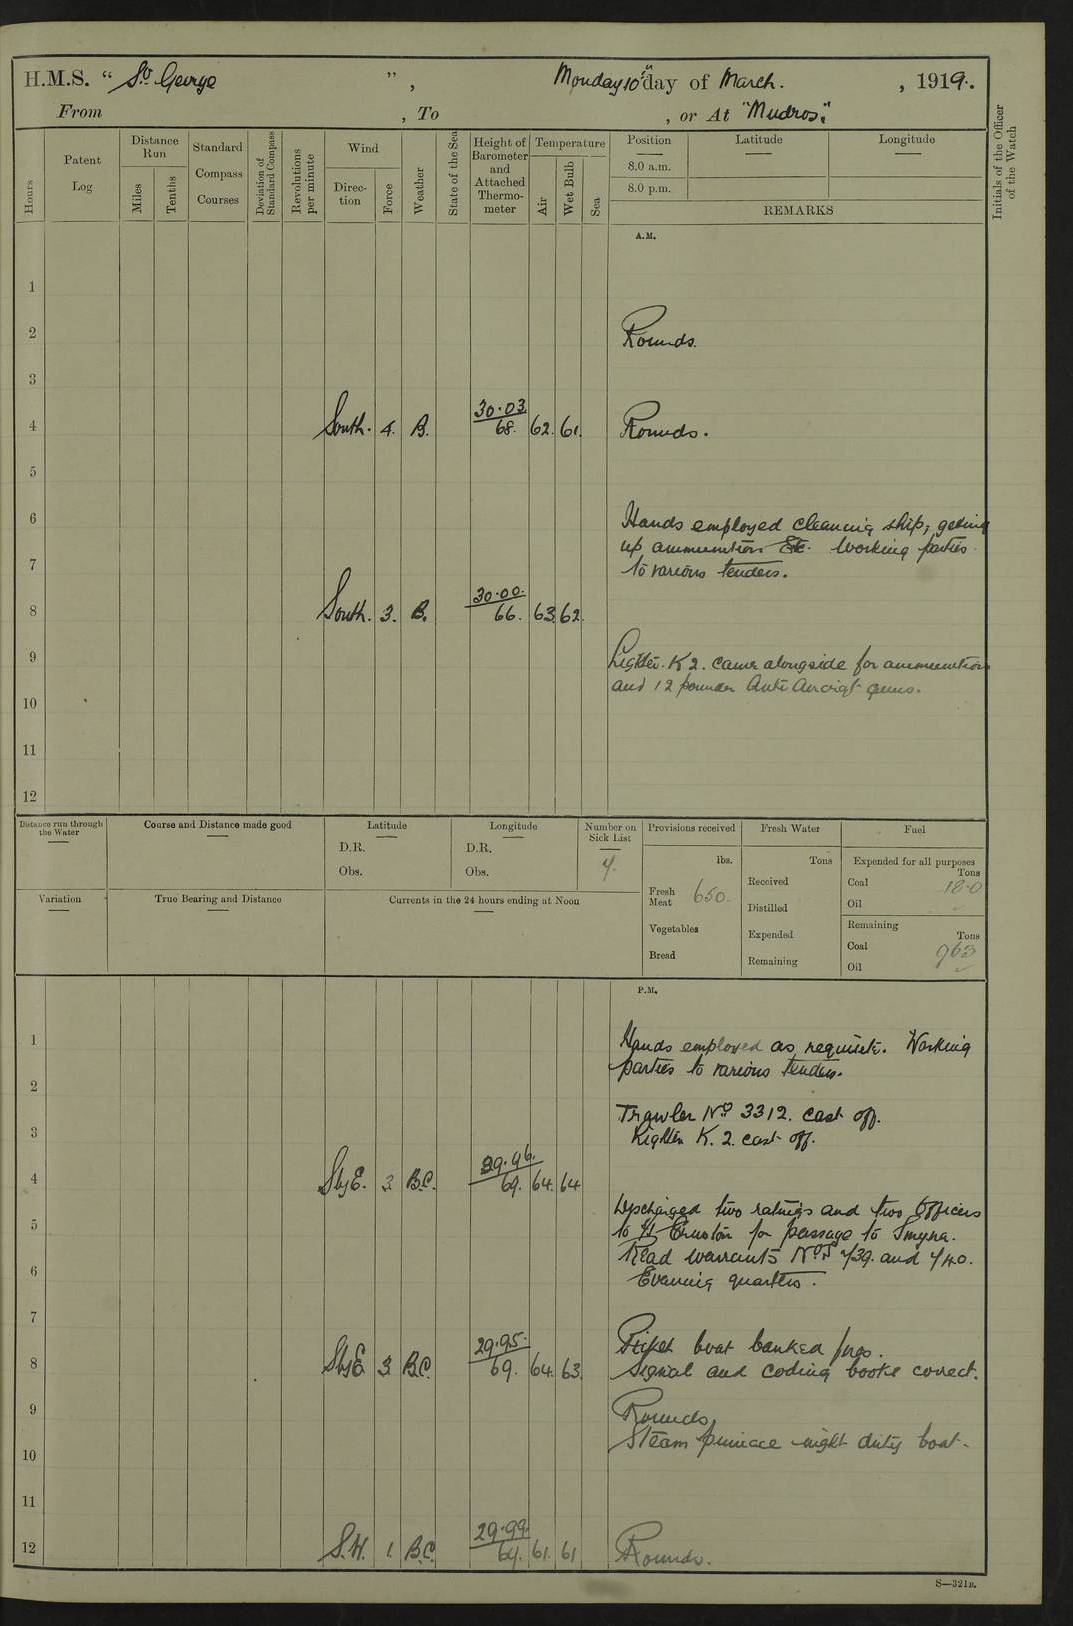 H.M.S. “ St George ” , Monday 10th day of March. , 1919.
From , To , or At "Mudros."
Initials of the Officer of the Watch
Hours
Patent Log
Distance Run
Miles
Tenths
Standard Compass Courses
Deviation of Standard Compass
Revolutions per minute
Wind
Direction
Force
Weather
State of the Sea
Height of Barometer and Attached Thermometer
Temperature
Air
Wet Bulb
Sea
Position
Latitude
Longitude
8.0 a.m.
8.0 p.m.
REMARKS
A.M.
1
2 Rounds.
3
4 South. 4. B. 30.03. 68. 62. 61. Rounds.
5
6 Hands employed cleaning ship, getting
up ammunition Etc. Working parties
7 to various tenders.
8 South. 3. B. 30.00. 66. 63 62.
9 Lighter K 2. came alongside for ammunition
and 12 pounder Anti Aircraft guns.
10
11
12
Distance run through the Water
Course and Distance made good
Latitude
D.R.
Obs.
Longitude
D.R.
Obs.
Number on Sick List
4.
Provisions received
lbs.
Fresh Meat 650.
Vegetables
Bread
Fresh Water
Tons
Received
Distilled
Expended
Remaining
Fuel
Expended for all purposes
Tons
Coal 18.0
Oil
Remaining
Tons
Coal 963
Oil
Variation
True Bearing and Distance
Currents in the 24 hours ending at Noon
P.M.
1 Hands employed as requisite. Working
parties to various tenders.
2
Trawler No 3312. cast off.
3 Lighter K. 2. cast off.
4 SbyE. 3. B.C. 29.96. 69. 64. 64
Discharged two ratings and two Officers
5 to for passage to Smyrna.
Read warrants Nos 439. and 440.
6 Evening quarters.
7
Picket boat banked fires.
8 SbyE 3. B.C. 29.95. 69. 64. 63. Signal and coding books correct.
9 Rounds.
Steam pinnace night duty boat.
10
11
12 S.W. 1. B.C. 29.99. 64. 61. 61 Rounds.
S—321B.